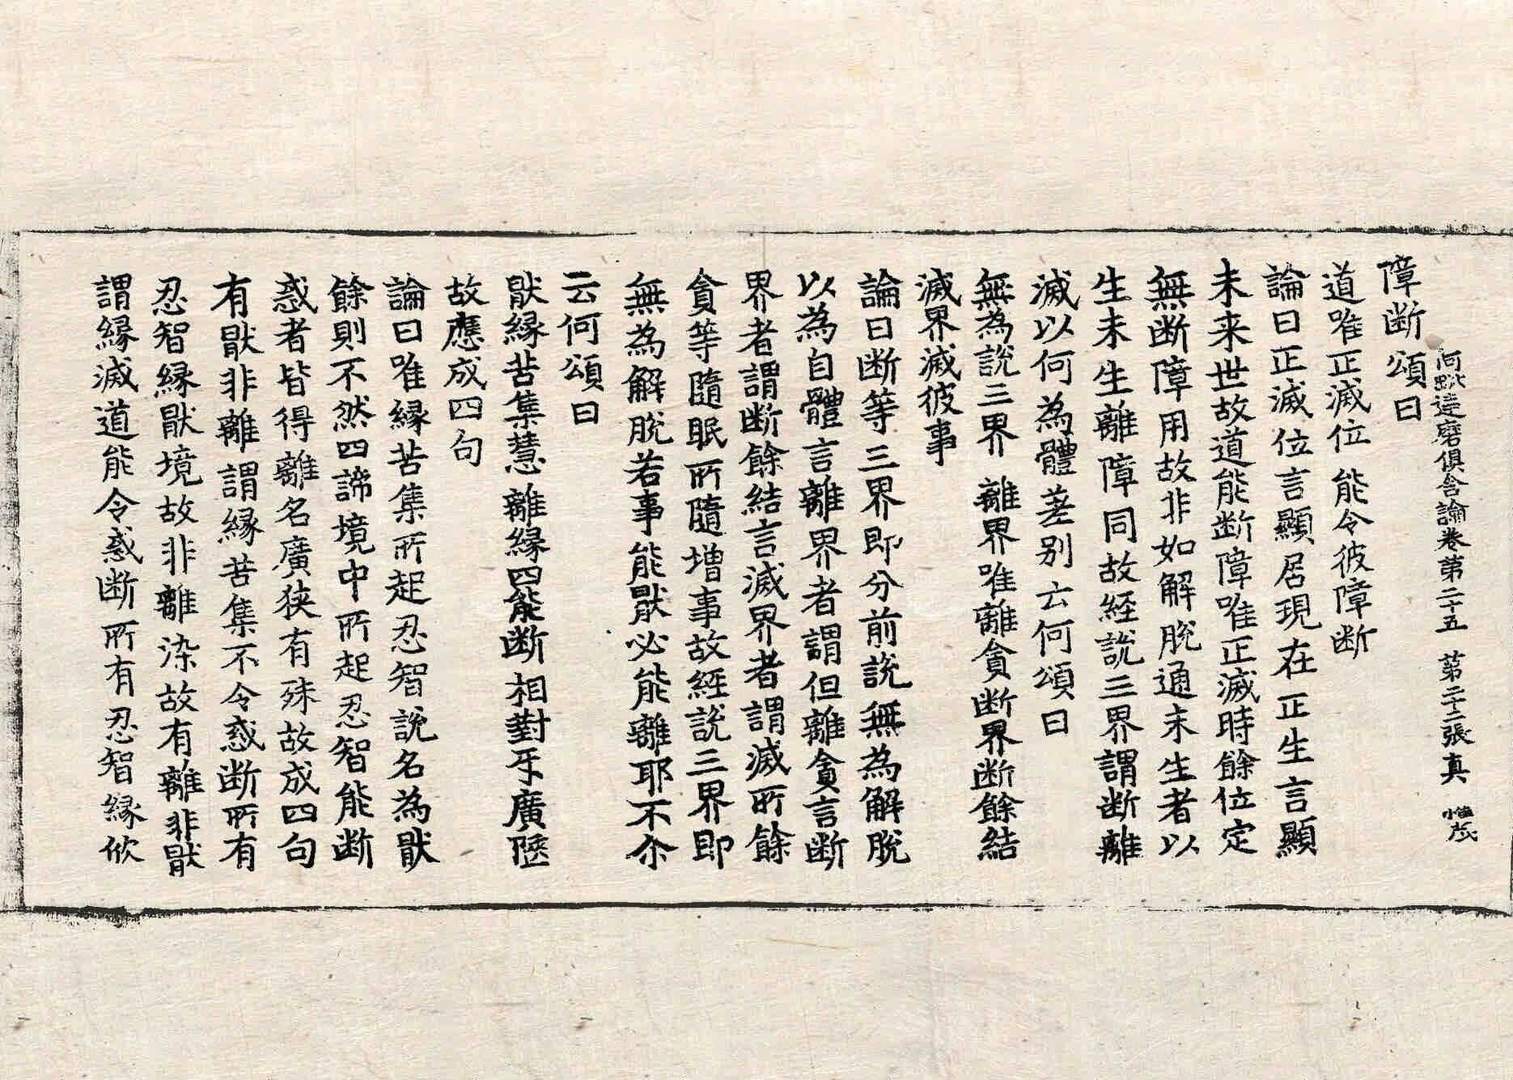 阿毗達磨俱舍論卷第二十五　第二十二張　真
障断頌曰
道唯正滅位　能令彼障断
論曰正滅位言顯居現在正生言顯
未来世故道能断障唯正滅時餘位定
無断障用故非如解脫通未生者以
生未生離障同故經說三界謂断離
滅以何為體差别云何頌曰
無為說三界　離界唯離貪断界断餘結
滅界滅彼事
論曰断等三界即分前說無為解脫
以為自體言離界者謂但離貪言断
界者謂断餘結言滅界者謂滅所餘
貪等隨眠所隨增事故經說三界即
無為解脫若事能猒必能離耶不尒
云何頌曰
猒緣苦集慧　離緣四能断相對互廣陿
故應成四句
論曰唯緣苦集所起忍智說名為猒
餘則不然四諦境中所起忍智能断
惑者皆得離名廣狹有殊故成四句
有猒非離謂緣苦集不令惑断所有
忍智緣猒境故非離染故有離非猒
謂緣滅道能令惑断所有忍智緣欣